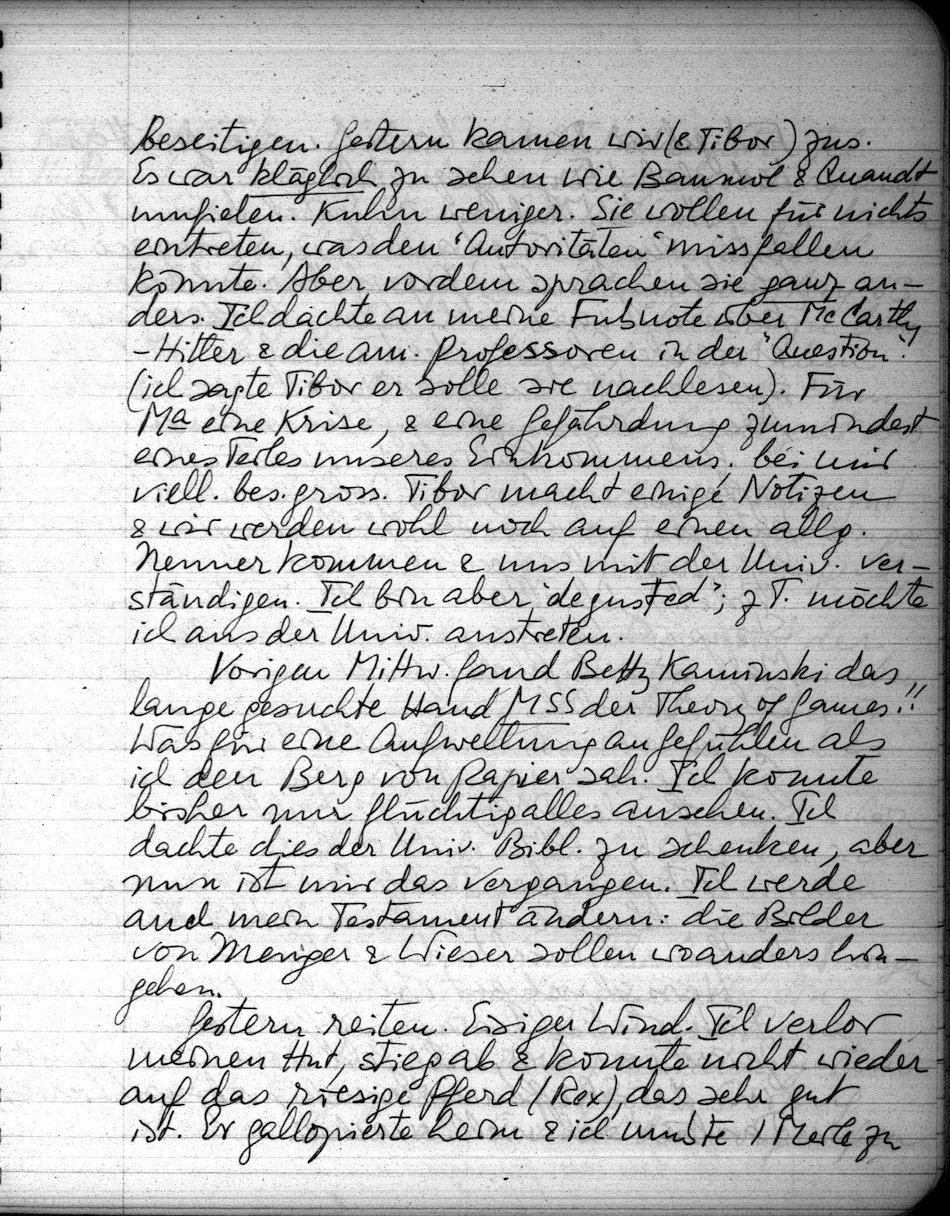 beseitigen. Gestern kamen wir (& Tibor) zus.
Es war kläglich zu sehen wie Baumol & Quandt
umfielen. Kuhn weniger. Sie wollen für nichts
eintreten, was den "Autoritäten" missfallen
könnte. Aber vordem sprachen sie ganz an-
ders. Ich dachte an meine Fußnote über McCarthy
- Hitler & die am. Professoren in der "Question".
(ich sagte Tibor er solle sie nachlesen). Für
Ma eine Krise, & eine Gefährdung zumindest
eines Teiles unseres Einkommens. bei mir
viell. bes. gross. Tibor macht einige Notizen
& wir werden wohl noch auf einen allg.
Nenner kommen & uns mit der Univ. ver-
ständigen. Ich bin aber "degusted"; z T. möchte
ich aus der Univ. austreten.
Vorigen Mittw. fand Betty Kaminski das
lange gesuchte Hand MSS der Theory of Games!!
Was für eine Aufwellung an Gefühlen als
ich den Berg von Papier sah. Ich konnte
bisher nur flüchtig alles ansehen. Ich
dachte dies der Univ. Bibl. zu schenken, aber
nun ist mir das vergangen. Ich werde
auch mein Testament ändern: die Bilder
von Menger & Wieser sollen woanders hin-
gehen.
Gestern reiten. Eisiger Wind. Ich verlor
meinen Hut, stieg ab & konnte nicht wieder
auf das riesige Pferd (Rex), das sehr gut
ist. Er gallopierte heim & ich mußte 1 Meile zu